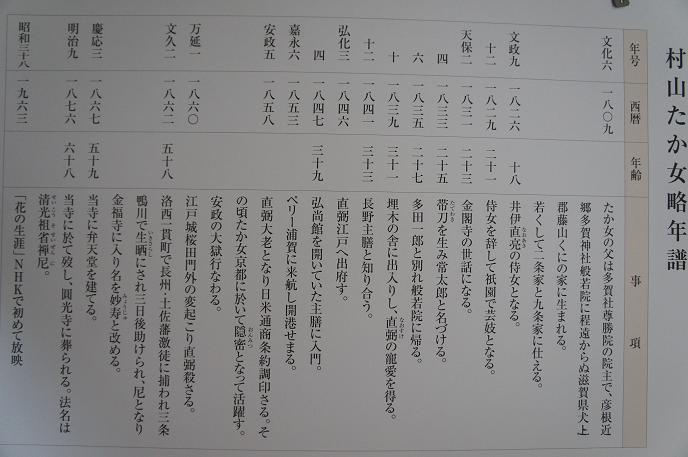 村山たか女略年譜
年号 西暦 年齢 事項
文化六 一八〇九 たか女の父は多賀社尊勝院の院主で、彦根近
郷多賀神社般若院に程遠からぬ滋賀県犬上
郡藤山くにの家に生まれる。
若くして二条家と九条家に仕える。
文政九 一八二六 十八 井伊直亮の侍女となる。
十二 一八二九 二十一 侍女を辞して祇園で芸妓となる。
天保二 一八三一 二十三 金閣寺の世話になる。
四 一八三三 二十五 帯刀を生み常太郎と名づける。
六 一八三五 二十七 多田一郎と別れ般若院に帰る。
十 一八三九 三十一 埋木の舎に出入りし、直弼の寵愛を得る。
十二 一八四一 三十三 長野主膳と知り合う。
弘化三 一八四六 直弼江戸へ出府す。
四 一八四七 三十九 弘尚館を開いていた主膳に入門。
嘉永六 一八五三 ペリー浦賀に来航し開港せまる。
安政五 一八五八 直弼大老となり日米通商条約調印さる。そ
の頃たか女京都に於いて隠密となって活躍す。
安政の大獄行なわる。
万延一 一八六〇 江戸城桜田門外の変起こり直弼殺さる。
文久二 一八六二 五十八 洛西一貫町で長州・土佐藩激徒に捕われ三条
鴨川で生晒にされ三日後助けられ、尼となり
金福寺に入り名を妙寿と改める。
慶応三 一八六七 五十九 当寺に弁天堂を建てる。
明治九 一八七六 六十八 当寺に於て歿し、圓光寺に葬られる。法名は
清光祖省禅尼。
昭和三十八 一九六三 「花の生涯」NHKで初めて放映